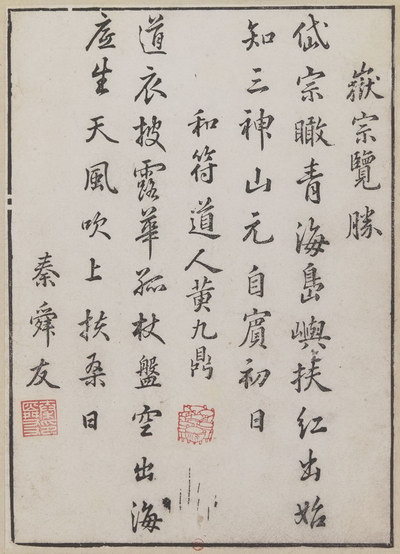 嶽宗覽勝
岱宗瞰青海島嶼挾紅出始
知三神山元自賓初日
和符道人黃九鼎
道衣披露華孤杖盤空出海
底生天風吹上扶桑日
秦舜友